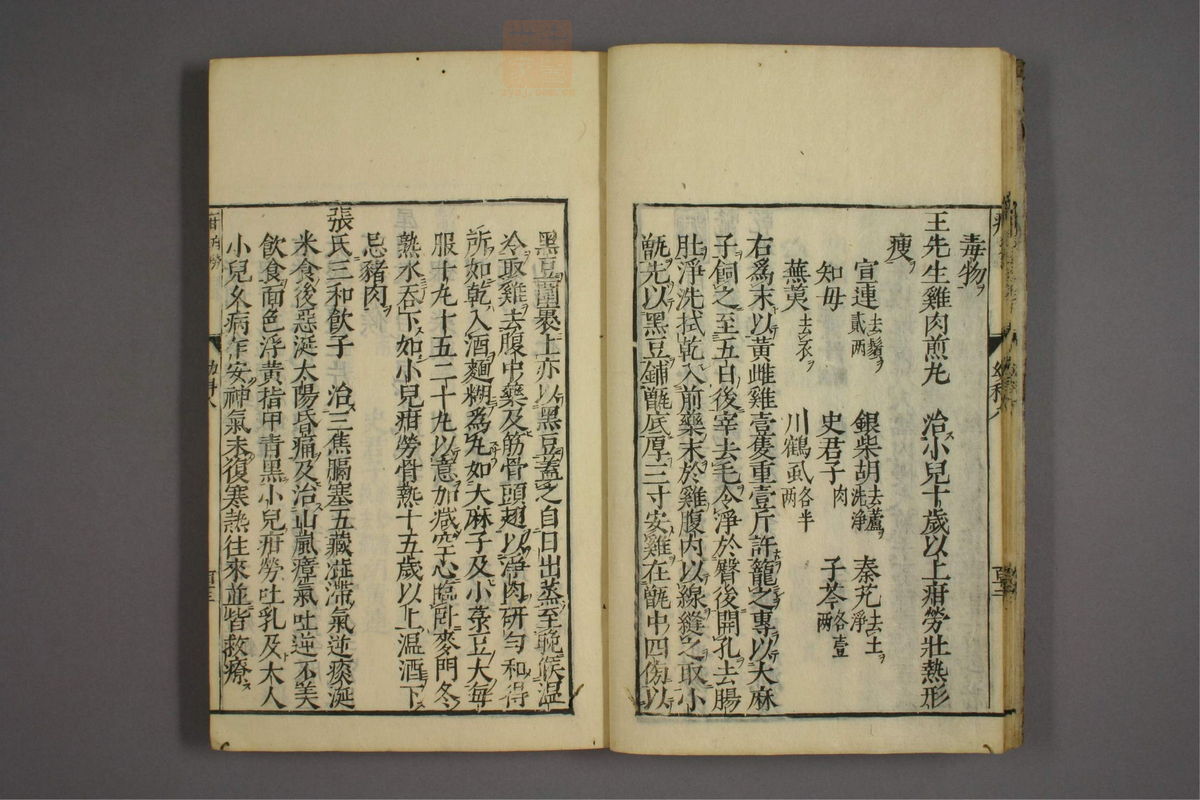 毒物
王先生雞肉煎丸　治小兒十歲以上疳勞壯熱形
瘦
宣連去鬚貳兩　銀柴胡去蘆洗淨　秦艽去土淨
知母　史君子肉　子芩各壹兩
蕪荑去衣　川鶴虱各半兩
右爲末以黃雌雞壹隻重壹斤許籠之專以大麻
子飼之至五日後宰去毛令淨於臀後開孔去腸
肚淨洗拭乾入前藥末於雞腹內以線縫之取小
甑先以黑豆鋪甑底厚三寸安雞在甑中四傍以
黑豆圍裹上亦以黑豆蓋之自日出蒸至晚候溫
冷取雞去腹中藥及筋骨頭翅以淨肉研勻和得
所如乾入酒麵糊爲丸如大麻子及小菉豆大每
服十丸十五二十丸以意加減空心臨臥麥門冬
熱水吞下如小兒疳勞骨熱十五歲以上溫酒下
忌豬肉
張氏三和飲子　治三焦膈塞五藏澁滯氣逆痰涎
米食後惡涎太陽昏痛及治山嵐瘴氣吐逆不美
飲食面色浮黃指甲青黑小兒疳勞吐乳及大人
小兒久病乍安神氣未復寒熱往來並皆救療